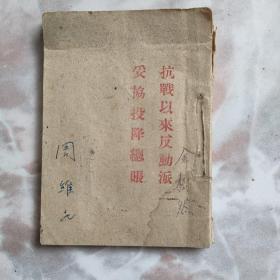 抗戰以來反動派
妥協投降總賬
周維